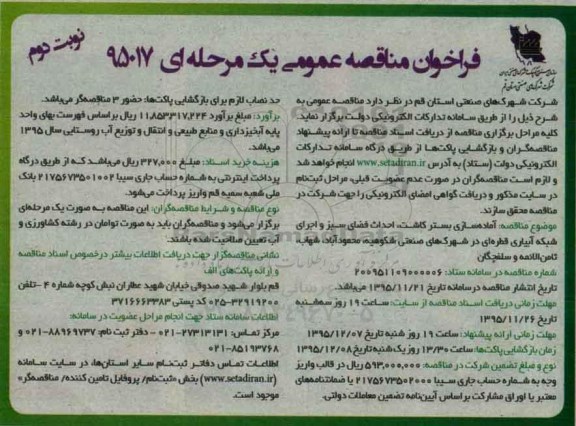 نوبت دوم
فراخوان مناقصه عمومی یک مرحله‌ای ۹۵۰۱۷
شرکت شهرک‌های صنعتی استان قم در نظر دارد مناقصه عمومی به
شرح ذیل را از طریق سامانه تدارکات الکترونیکی دولت برگزار نماید.
کلیه مراحل برگزاری مناقصه از دریافت اسناد مناقصه تا ارائه پیشنهاد
مناقصه‌گران و بازگشایی پاکت‌ها از طریق درگاه سامانه تدارکات
الکترونیکی دولت (ستاد) به آدرس www.setadiran.ir انجام خواهد شد
و لازم است مناقصه‌گران در صورت عدم عضویت قبلی، مراحل ثبت‌نام
در سایت مذکور و دریافت گواهی امضای الکترونیکی را جهت شرکت در
مناقصه محقق سازند.
موضوع مناقصه: آماده‌سازی بستر کاشت، احداث فضای سبز و اجرای
شبکه آبیاری قطره‌ای در شهرک‌های صنعتی شکوهیه، محمودآباد، شهاب،
ثامن‌الائمه و سلفچگان
شماره مناقصه در سامانه ستاد: ۲۰۰۹۵۱۱۰۹۰۰۰۰۰۶
تاریخ انتشار مناقصه در سامانه تاریخ ۱۳۹۵/۱۱/۲۱ می‌باشد.
مهلت زمانی دریافت اسناد مناقصه از سایت: ساعت ۱۹ روز سه‌شنبه
تاریخ ۱۳۹۵/۱۱/۲۶
مهلت زمانی ارائه پیشنهاد: ساعت ۱۹ روز شنبه تاریخ ۱۳۹۵/۱۲/۰۷
زمان بازگشایی پاکت‌ها: ساعت ۱۳/۳۰ روز یک‌شنبه تاریخ ۱۳۹۵/۱۲/۰۸
نوع و مبلغ تضمین شرکت در مناقصه: ۵۹۳,۰۰۰,۰۰۰ ریال در قالب واریز
وجه به شماره حساب جاری سیبا ۲۱۷۵۶۷۳۵۰۲۰۰۰ یا ضمانتنامه‌های
معتبر یا اوراق مشارکت بر اساس آیین‌نامه تضمین معاملات دولتی.
حد نصاب لازم برای بازگشایی پاکت‌ها: حضور ۳ مناقصه‌گر می‌باشد.
برآورد: مبلغ برآورد ۱۱,۸۵۳,۳۱۷,۲۲۴ ریال بر اساس فهرست بهای واحد
پایه آبخیزداری و منابع طبیعی و انتقال و توزیع آب روستایی سال ۱۳۹۵
می‌باشد.
هزینه خرید اسناد: مبلغ ۳۲۷,۰۰۰ ریال می‌باشد که از طریق درگاه
پرداخت اینترنتی به شماره حساب جاری سیبا ۲۱۷۵۶۷۳۵۰۱۰۰۲ بانک
ملی شعبه سمیه قم واریز پرداخت می‌شود.
نوع مناقصه و شرایط مناقصه‌گران: این مناقصه به صورت یک مرحله‌ای
برگزار می‌شود و مناقصه‌گران باید به صورت توامان در رشته کشاورزی و
آب تعیین صلاحیت شده باشند.
نشانی مناقصه‌گزار جهت دریافت اطلاعات بیشتر درخصوص اسناد مناقصه
و ارائه پاکت‌های الف
قم بلوار شهید صدوقی خیابان شهید عطاران نبش کوچه شماره ۴ -تلفن
۰۲۵-۳۲۹۱۹۲۰۰ کد پستی ۳۷۱۶۶۶۳۳۸۳
اطلاعات سامانه ستاد جهت انجام مراحل عضویت در سامانه:
مرکز تماس: ۰۲۱-۲۷۳۱۳۱۳۱ - دفتر ثبت نام: ۸۸۹۶۹۷۳۷-۰۲۱ و
۰۲۱-۸۵۱۹۳۷۶۸
اطلاعات تماس دفاتر ثبت‌نام سایر استان‌ها، در سایت سامانه
(www.setadiran.ir) بخش «ثبت‌نام/ پروفایل تامین کننده/ مناقصه‌گر»
موجود است.